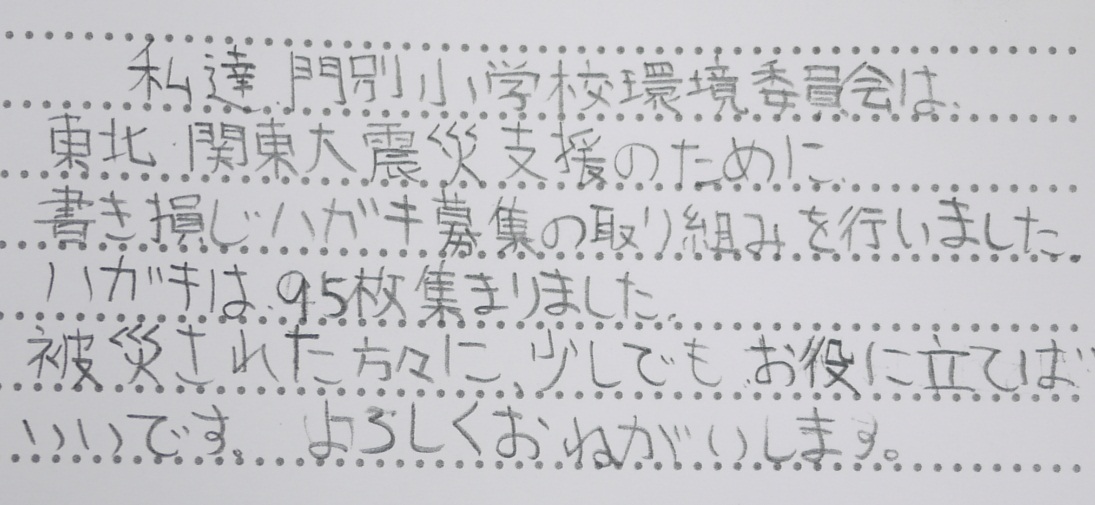 私達、門別小学校環境委員会は、
東北・関東大震災支援のために、
書き損じハガキ募集の取り組みを行いました。
ハガキは、95枚集まりました。
被災された方々に、少しでも お役に立てば
いいです。 よろしくおねがいします。